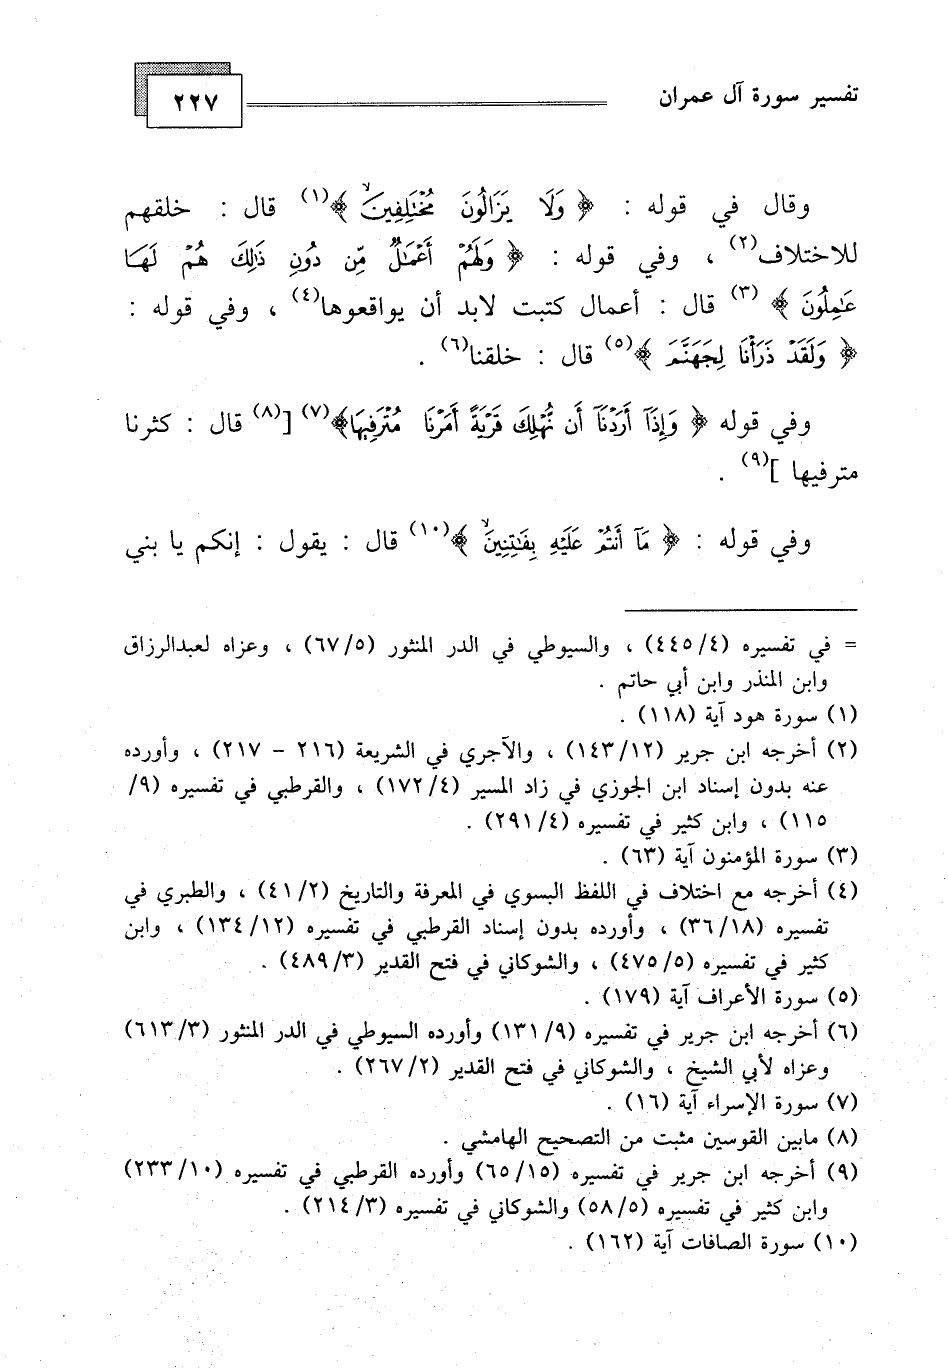 تفسير سورة آل عمران
٢٢٧
وقال في قوله : ﴿ وَلَا يَزَالُونَ مُخْتَلِفِينَ ﴾(١) قال : خلقهم
للاختلاف(٢) ، وفي قوله : ﴿ وَلَهُمْ أَعْمَالٌ مِّن دُونِ ذَٰلِكَ هُمْ لَهَا
عَامِلُونَ ﴾ (٣) قال : أعمال كتبت لابد أن يواقعوها(٤) ، وفي قوله :
﴿ وَلَقَدْ ذَرَأْنَا لِجَهَنَّمَ ﴾(٥) قال : خلقنا(٦) .
وفي قوله ﴿ وَإِذَآ أَرَدْنَآ أَن نُّهْلِكَ قَرْيَةً أَمَرْنَا مُتْرَفِيهَا﴾(٧) [(٨) قال : كثرنا
مترفيها ](٩) .
وفي قوله : ﴿ مَآ أَنتُمْ عَلَيْهِ بِفَاتِنِينَ ﴾(١٠) قال : يقول : إنكم يا بني
= في تفسيره (٤/ ٤٤٥) ، والسيوطي في الدر المنثور (٥/ ٦٧) ، وعزاه لعبدالرزاق
وابن المنذر وابن أبي حاتم .
(١) سورة هود آية (١١٨) .
(٢) أخرجه ابن جرير (١٢/ ١٤٣) ، والآجري في الشريعة (٢١٦ - ٢١٧) ، وأورده
عنه بدون إسناد ابن الجوزي في زاد المسير (٤/ ١٧٢) ، والقرطبي في تفسيره (٩/
١١٥) ، وابن كثير في تفسيره (٤/ ٢٩١) .
(٣) سورة المؤمنون آية (٦٣) .
(٤) أخرجه مع اختلاف في اللفظ البسوي في المعرفة والتاريخ (٢/ ٤١) ، والطبري في
تفسيره (١٨/ ٣٦) ، وأورده بدون إسناد القرطبي في تفسيره (١٢/ ١٣٤) ، وابن
كثير في تفسيره (٥/ ٤٧٥) ، والشوكاني في فتح القدير (٣/ ٤٨٩) .
(٥) سورة الأعراف آية (١٧٩) .
(٦) أخرجه ابن جرير في تفسيره (٩/ ١٣١) وأورده السيوطي في الدر المنثور (٣/ ٦١٣)
وعزاه لأبي الشيخ ، والشوكاني في فتح القدير (٢/ ٢٦٧) .
(٧) سورة الإسراء آية (١٦) .
(٨) مابين القوسين مثبت من التصحيح الهامشي .
(٩) أخرجه ابن جرير في تفسيره (١٥/ ٦٥) وأورده القرطبي في تفسيره (١٠/ ٢٣٣)
وابن كثير في تفسيره (٥/ ٥٨) والشوكاني في تفسيره (٣/ ٢١٤) .
(١٠) سورة الصافات آية (١٦٢) .